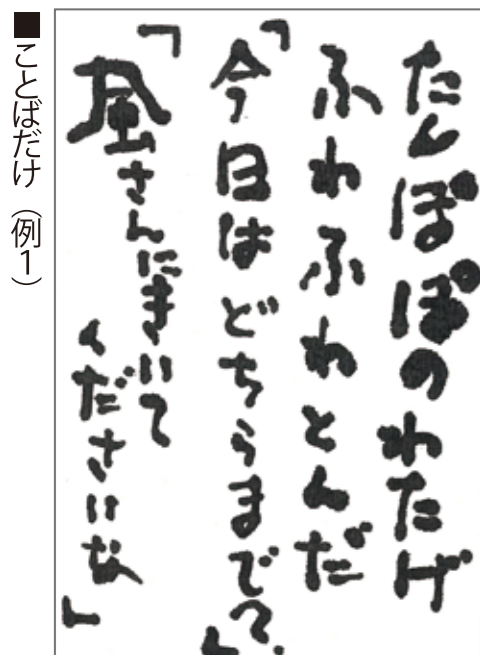 たんぽぽのわたげ
ふわふわとんだ
「今日はどちらまで?」
「風さんにきいて
くださいな」
■ことばだけ（例1）